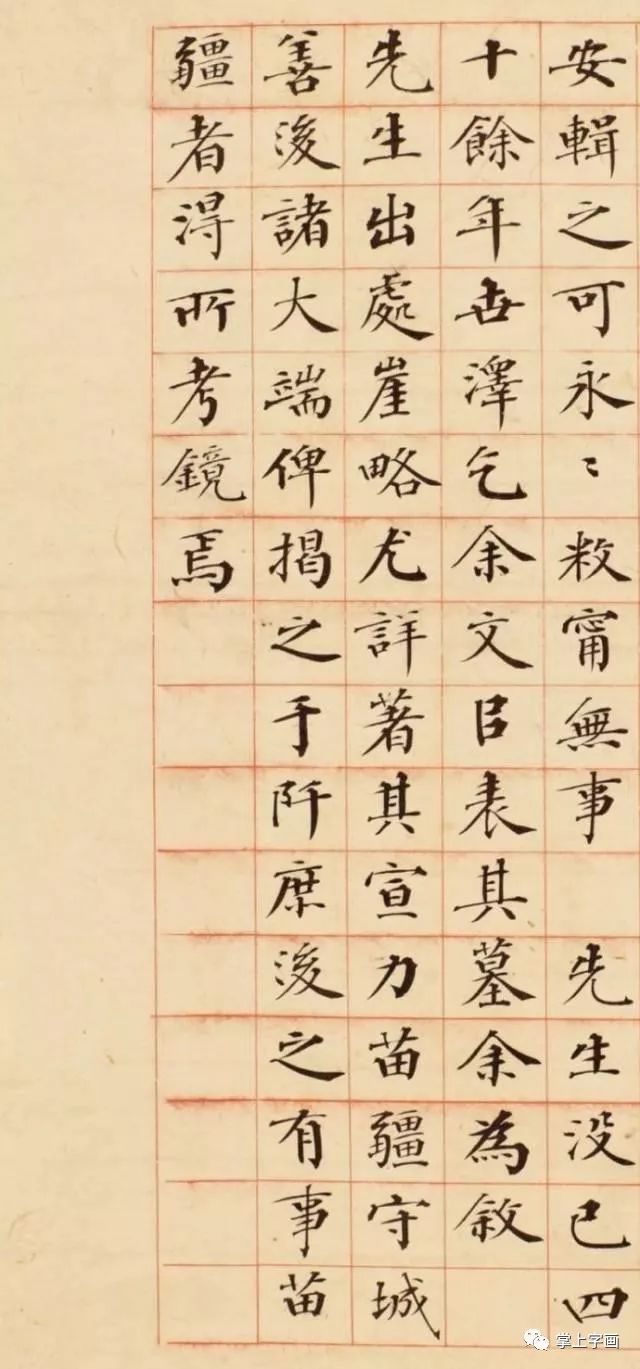 安輯之可永〻敉甯無事 先生没已四
十餘年世澤乞余文㠯表其墓余為敘
先生出處崖略尤詳著其宣力苗疆守城
善後諸大端俾揭之于阡庶後之有事苗
疆者得所考鏡焉
掌上字画